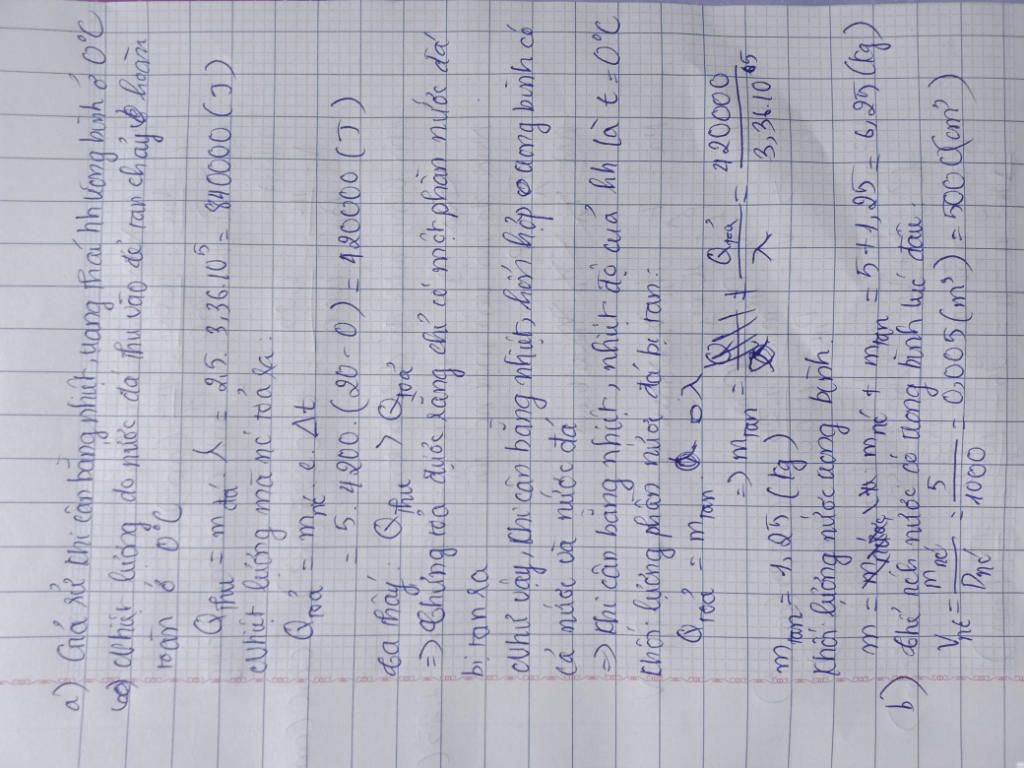 a) Giả sử khi cân bằng nhiệt, trạng thái hh trong bình ở 0°C
Nhiệt lượng do nước đá thu vào để tan chảy hoàn
toàn ở 0°C
Qthu = mđá . λ = 25. 3,36.10⁵ = 840000 (J)
Nhiệt lượng mà nc tỏả ra:
Qtoả = mnc . c . Δt
= 5 . 4200 . (20 - 0) = 420000 (J)
Ta thấy: Qthu > Qtoả
=> Chứng tỏ được rằng chỉ có một phần nước đá
bị tan ra
Như vậy, khi cân bằng nhiệt, hỗn hợp trong bình có
cả nước và nước đá
=> khi cân bằng nhiệt, nhiệt độ của hh là t = 0°C
Khối lượng phần nước đá bị tan:
Qtoả = mtan . λ => mtan = Qtoả / λ = 420000 / 3,36.10⁵
mtan = 1,25 (kg)
Khối lượng nước trong bình:
m = mnc + mtan = 5 + 1,25 = 6,25 (kg)
b) Thể tích nước có trong bình lúc đầu:
Vnc = mnc / Dnc = 5 / 1000 = 0,005 (m³) = 5000 (cm³)